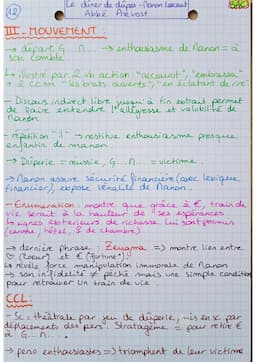 12
Le dîner de dupes - Manon Lescaut
BAC
Abbé Prévost
III - MOUVEMENT :
→ départ G... M... → enthousiasme de Manon = à
son comble
→ illustré par 2 vb action "accourut", "embrassa"
+ 2 CCM "les bras ouverts", "en éclatant de rire"
- Discours indirect libre jusqu'à fin extrait permet
de faire entendre l'allégresse et volubilité de
Manon
- répétition → restitue enthousiasme presque
enfantin de manon.
→ Dûperie = réussie, G... M... = victime.
→ Manon assure sécurité financière (avec lexique
financier), expose vénalité de Manon.
- Énumération : montre que grâce à €, train de
vie serait à la hauteur de ses espérances.
Signes extérieurs de richesse lui sont promis
(carrosse, hôtel, 3 de chambre)
→ dernière phrase : Zeugma => montre lien entre
♡ (coeur) et € (fortune)
↳ révèle force manipulation immorale de Manon
→ son infidélité ≠ péché mais une simple condition
pour retrouver un train de vie.
CCL :
- Sc = théâtrale par jeu de dûperie, mis en sc par
déplacements des pers. Stratagème = pour retirer €
à G... M...
→ perso enthousiastes => triomphent de leur victime